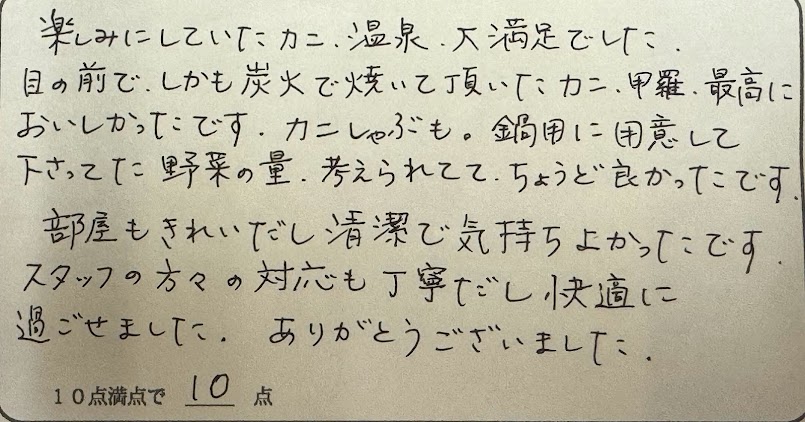 楽しみにしていたカニ、温泉、大満足でした。
目の前で、しかも炭火で焼いて頂いたカニ、甲羅、最高に
おいしかったです。カニしゃぶも。鍋用に用意して
下さってた野菜の量、考えられてて、ちょうど良かったです。
部屋もきれいだし清潔で気持ちよかったです。
スタッフの方々の対応も丁寧だし快適に
過ごせました。ありがとうございました。
10点満点で 10 点